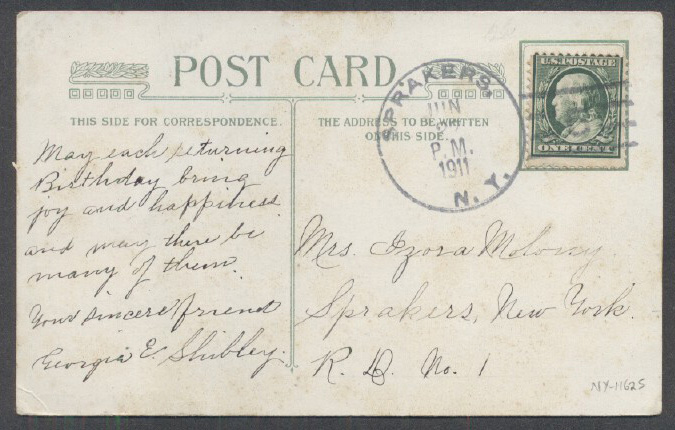 POST CARD
THIS SIDE FOR CORRESPONDENCE.
THE ADDRESS TO BE WRITTEN
ON THIS SIDE.
SPRAKERS,
JUN
P.M.
1911
N.Y.
U.S. POSTAGE
ONE CENT
May each returning
Birthday bring
joy and happiness
and may there be
many of them.
Your sincere friend
Georgia E. Shibley.
Mrs. Izora Molony
Sprakers, New York.
R. D. No. 1
NY-11625